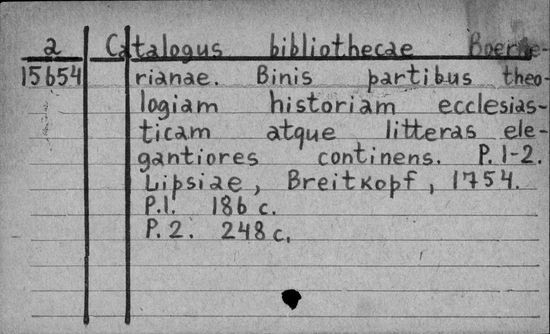 a Catalogus bibliothecae Boerne-
15654 rianae. Binis partibus theo-
logiam historiam ecclesias-
ticam atque litteras ele-
gantiores continens. P. 1-2.
Lipsiae, Breitkopf, 1754.
P.1. 186 c.
P.2. 248 c.